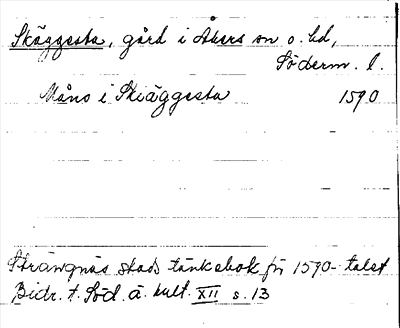 Skäggesta, gård i Åkers sn o. hd,
Söderm. l.
Måns i Skiäggesta 1590
Strängnäs stads tänkebok för 1590-talet
Bidr. t. Söd. ä. kult. XII s. 13